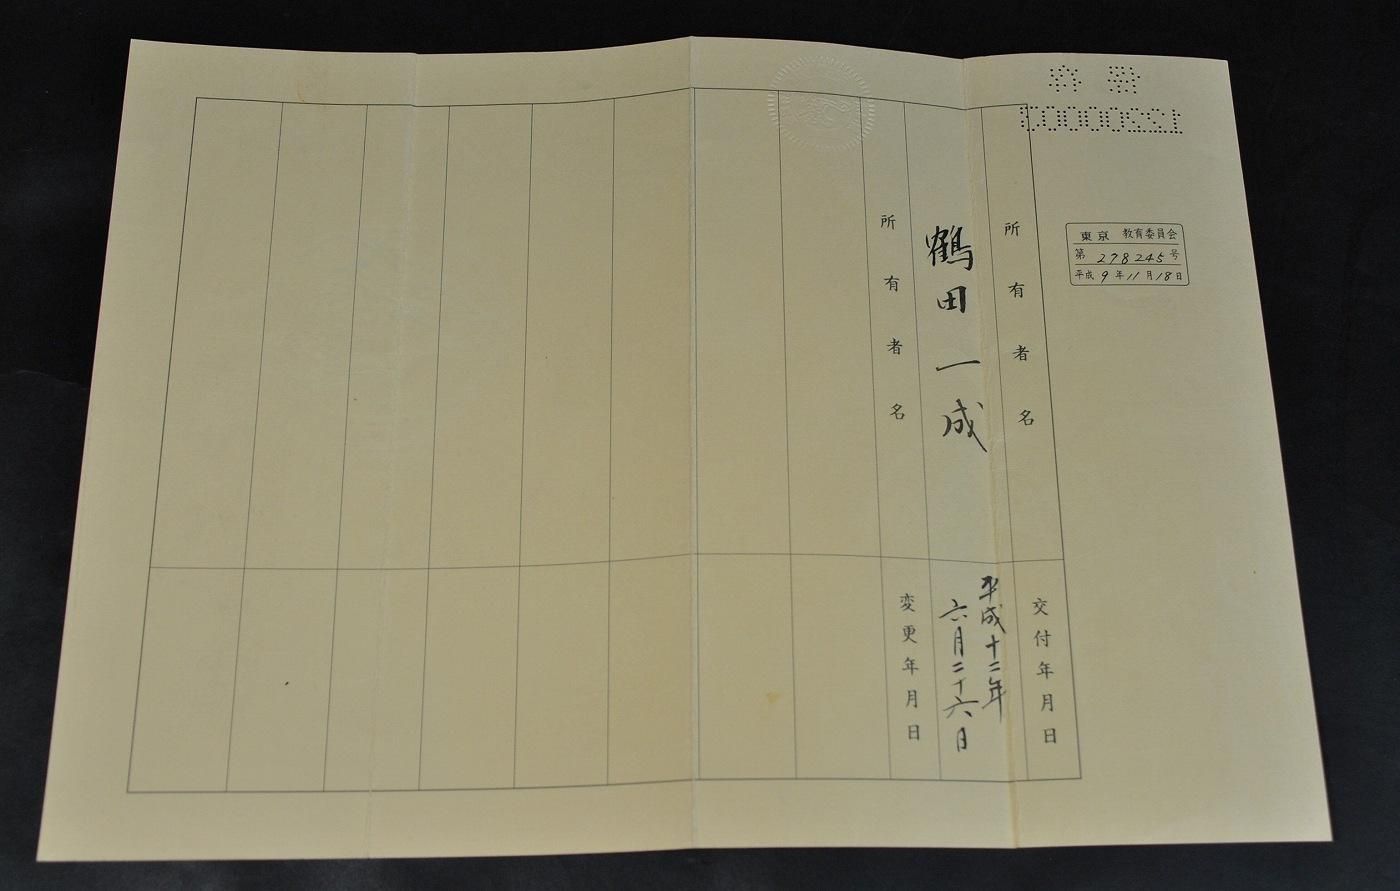 12200003
東京 教育委員会
第 278245 号
平成 9 年 11 月 18 日
所有者名
交付年月日
鶴田一成
平成十二年
六月二十六日
所有者名
変更年月日